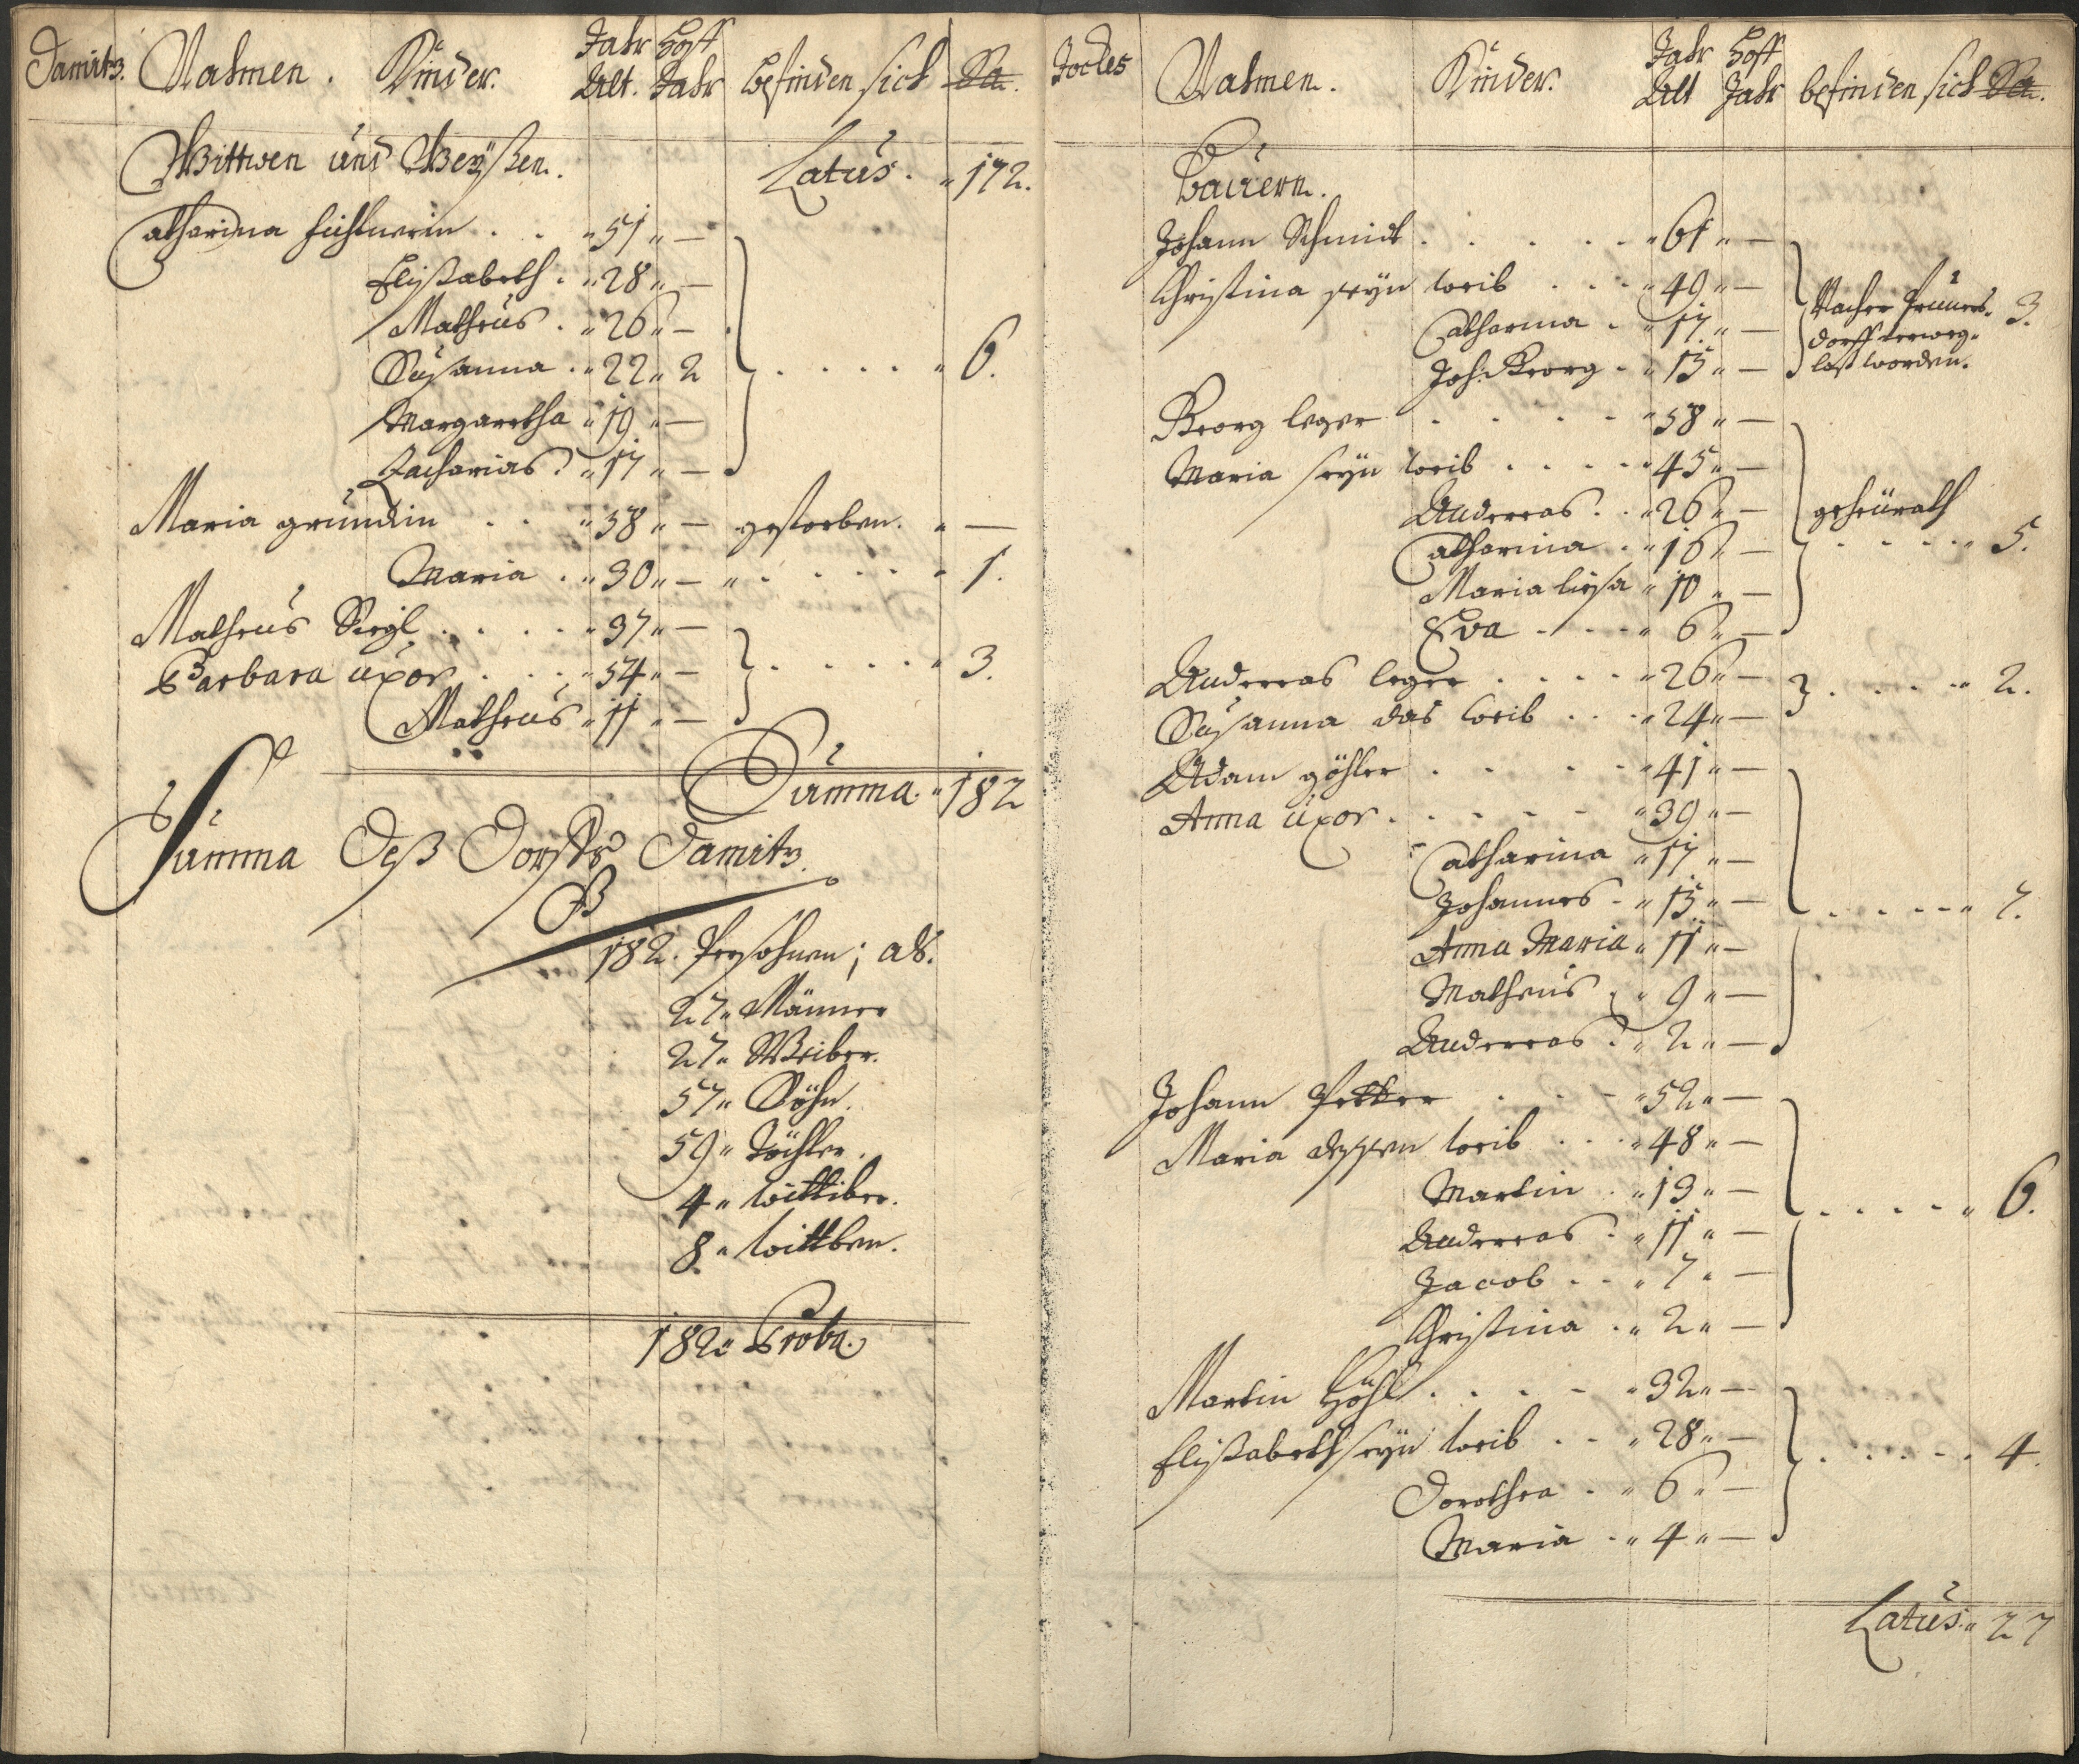 Damitz. Nahmen. Kinder. Jahr Alt. Hoff Jahr befinden sich Sa.
Wittwen und Weyßen. Latus. 172.
Catharina 51 —
Elisabeth. 28 —
Matheus. 26 —
Susanna. 22 2 6.
Margaretha 19 —
Zacharias. 17 —
Maria gründlin 58 — gestorben. —
Maria. 30 — 1.
Matheus Siegl 37 —
Barbara uxor 34 — 3.
Matheus 11 —
Summa 182
Summa Deß Dorffs Damitz.
182. Persohnen; als.
27 Männer
27 Weiber.
57 Söhn.
59 Töchter.
4 wittiber.
8 wittben.
182 Proba.
Jocles Nahmen. Kinder. Jahr Alt Hoff Jahr befinden sich Sa.
Bauern.
Johann Schmidt 61 —
Christina seyn weib 49 —
Catharina 17 — Nacher Prunes- 3.
Joh. Georg 15 — dorff losg-
last worden.
Georg leger 58 —
Maria seyn weib 45 —
Andreas 26 — geheürath
Catharina 16 — 5.
Maria lisa 10 —
Eva 6 —
Andreas leger 26 — 2.
Susanna das weib 24 —
Adam göhler 41 —
Anna uxor 39 —
Catharina 17 —
Johannes 15 — 7.
Anna Maria 11 —
Matheus 9 —
Andreas 2 —
Johann Petter 52 —
Maria dessen weib 48 —
Martin 13 —
Andreas 11 — 6.
Jacob 7 —
Christina 2 —
Martin Höhl 32 —
Elisabeth seyn weib 28 — 4.
Dorothea 6 —
Maria 4 —
Latus. 27